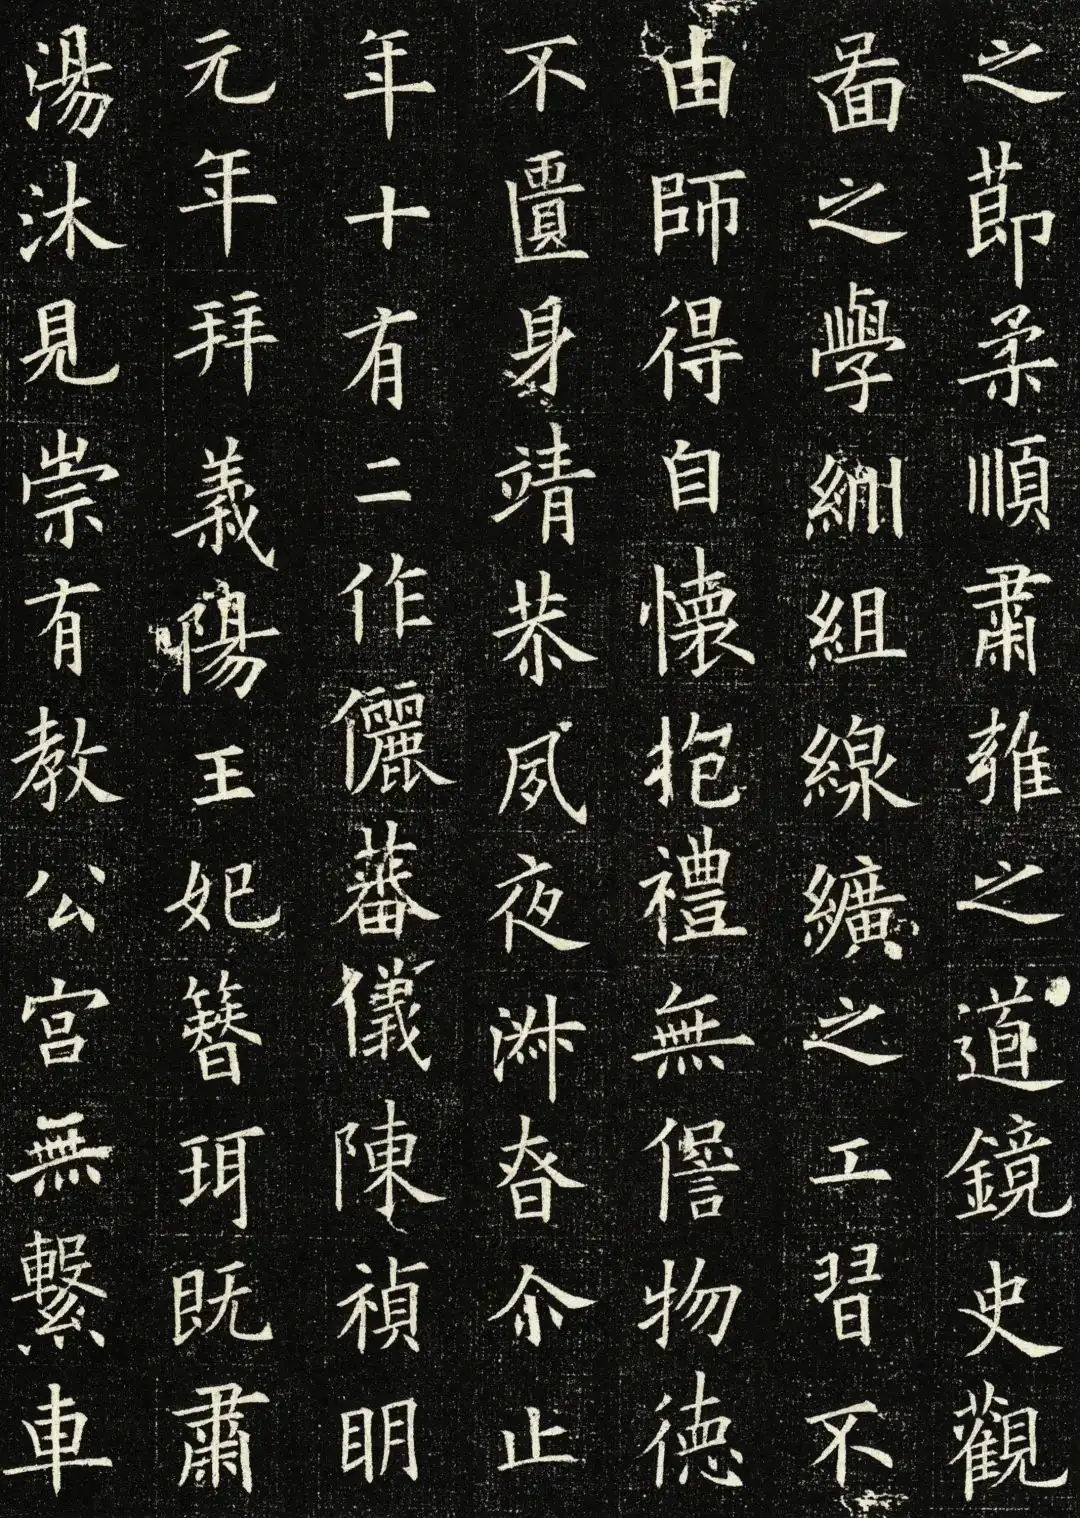 之節柔順肅雍之道鏡史觀
啚之學綳組線纊之工習不
由師得自懷抱禮無僁物德
不匱身靖恭夙夜淋慎尒止
年十有二作儷蕃儀陳禎明
元年拜義陽王妃簪珥既肅
湯沐見崇有教公宮無繫車